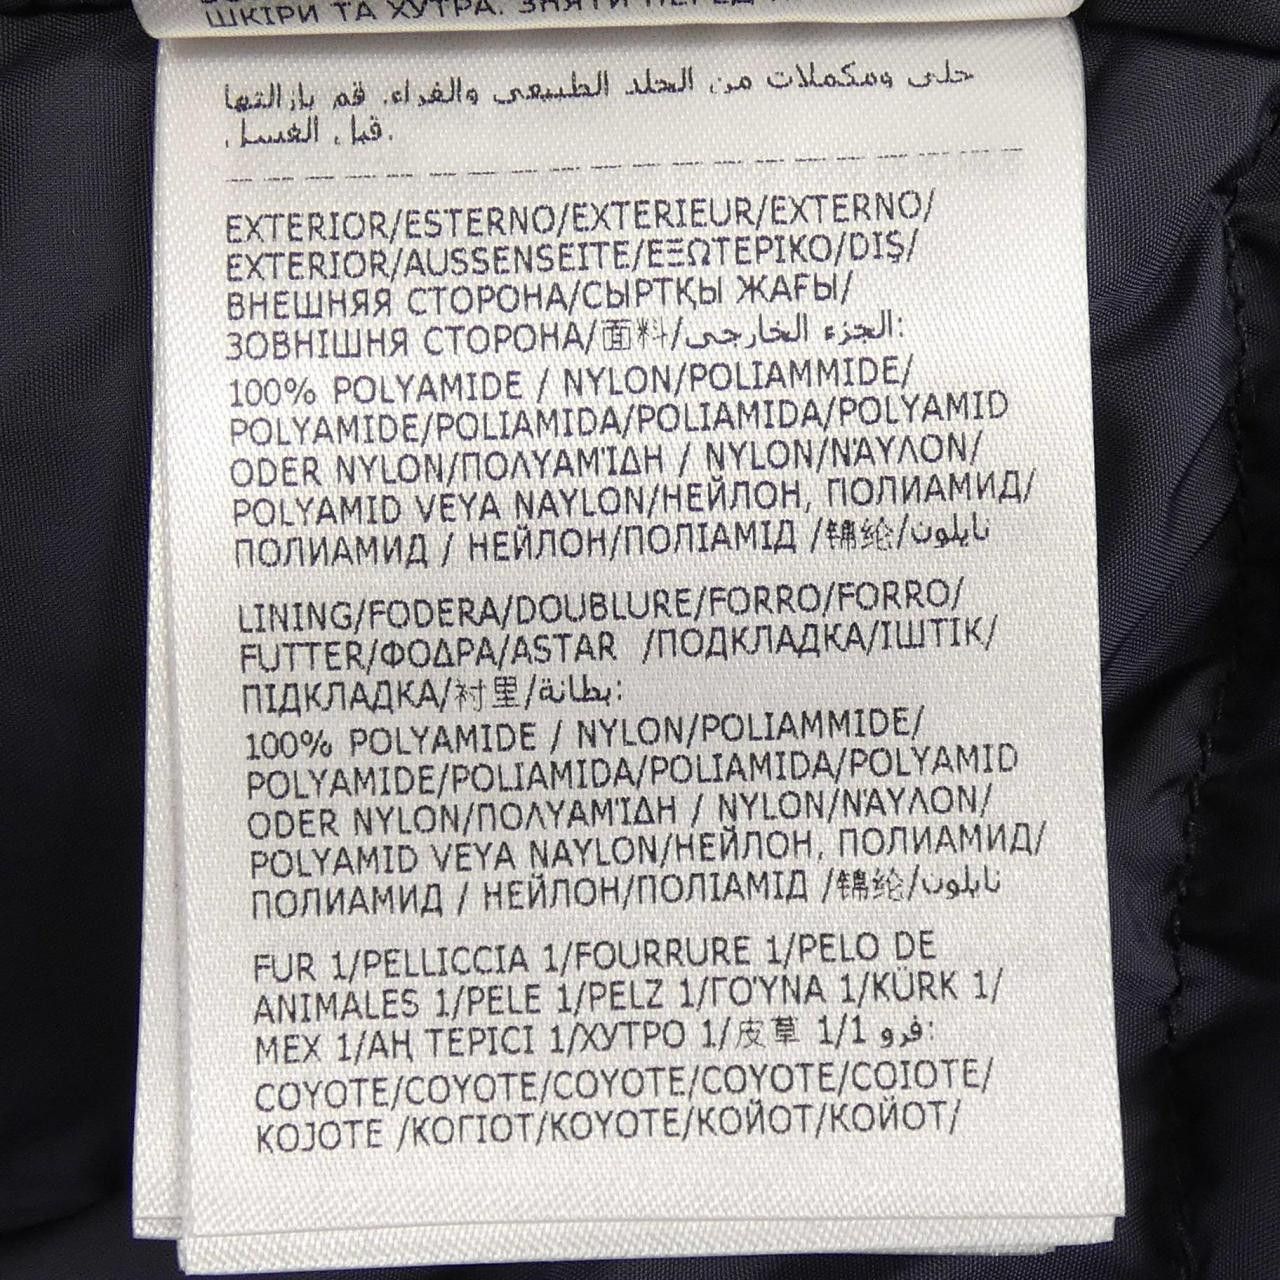 ШКІРИ ТА ХУТРА. ЗНЯТИ ПЕРЕД
حلى ومكملات من الجلد الطبيعي والفراء. قم بازالتها
قبل الغسيل.
EXTERIOR/ESTERNO/EXTERIEUR/EXTERNO/
EXTERIOR/AUSSENSEITE/ΕΞΩΤΕΡΙΚΟ/DIŞ/
ВНЕШНЯЯ СТОРОНА/СЫРТҚЫ ЖАҒЫ/
ЗОВНІШНЯ СТОРОНА/面料/الجزء الخارجي:
100% POLYAMIDE / NYLON/POLIAMMIDE/
POLYAMIDE/POLIAMIDA/POLIAMIDA/POLYAMID
ODER NYLON/ΠΟΛΥΑΜΊΔΗ / NYLON/ΝΆΥΛΟΝ/
POLYAMID VEYA NAYLON/НЕЙЛОН, ПОЛИАМИД/
ПОЛИАМИД / НЕЙЛОН/ПОЛІАМІД /锦纶/نايلون
LINING/FODERA/DOUBLURE/FORRO/FORRO/
FUTTER/ΦΟΔΡΑ/ASTAR /ПОДКЛАДКА/ІШТІК/
ПІДКЛАДКА/衬里/بطانة:
100% POLYAMIDE / NYLON/POLIAMMIDE/
POLYAMIDE/POLIAMIDA/POLIAMIDA/POLYAMID
ODER NYLON/ΠΟΛΥΑΜΊΔΗ / NYLON/ΝΆΥΛΟΝ/
POLYAMID VEYA NAYLON/НЕЙЛОН, ПОЛИАМИД/
ПОЛИАМИД / НЕЙЛОН/ПОЛІАМІД /锦纶/نايلون
FUR 1/PELLICCIA 1/FOURRURE 1/PELO DE
ANIMALES 1/PELE 1/PELZ 1/ΓΟΎΝΑ 1/KÜRK 1/
МЕХ 1/АҢ ТЕРІСІ 1/ХУТРО 1/皮草 1/1 فرو:
COYOTE/COYOTE/COYOTE/COYOTE/COIOTE/
KOJOTE /ΚΟΓΙΟΤ/KOYOTE/КОЙОТ/КОЙОТ/